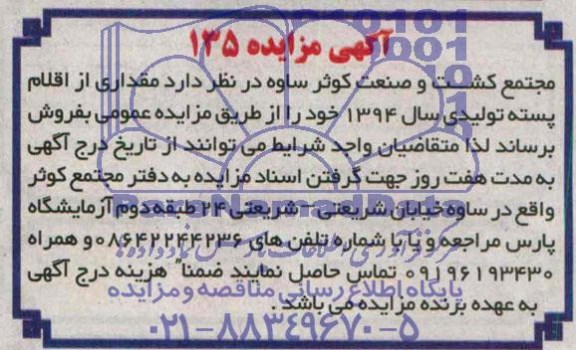 آگهی مزایده ۱۳۵
مجتمع کشت و صنعت کوثر ساوه در نظر دارد مقداری از اقلام
پسته تولیدی سال ۱۳۹۴ خود را از طریق مزایده عمومی بفروش
برساند لذا متقاضیان واجد شرایط می توانند از تاریخ درج آگهی
به مدت هفت روز جهت گرفتن اسناد مزایده به دفتر مجتمع کوثر
واقع در ساوه خیابان شریعتی – شریعتی ۲۴ طبقه دوم آزمایشگاه
پارس مراجعه و یا با شماره تلفن های ۰۸۶۴۲۲۴۴۲۳۶ و همراه
۰۹۱۹۶۱۹۳۴۳۰ تماس حاصل نمایند ضمناً هزینه درج آگهی
به عهده برنده مزایده می باشد.
پایگاه اطلاع رسانی مناقصه و مزایده
۰۲۱-۸۸۳۴۹۶۷۰-۵